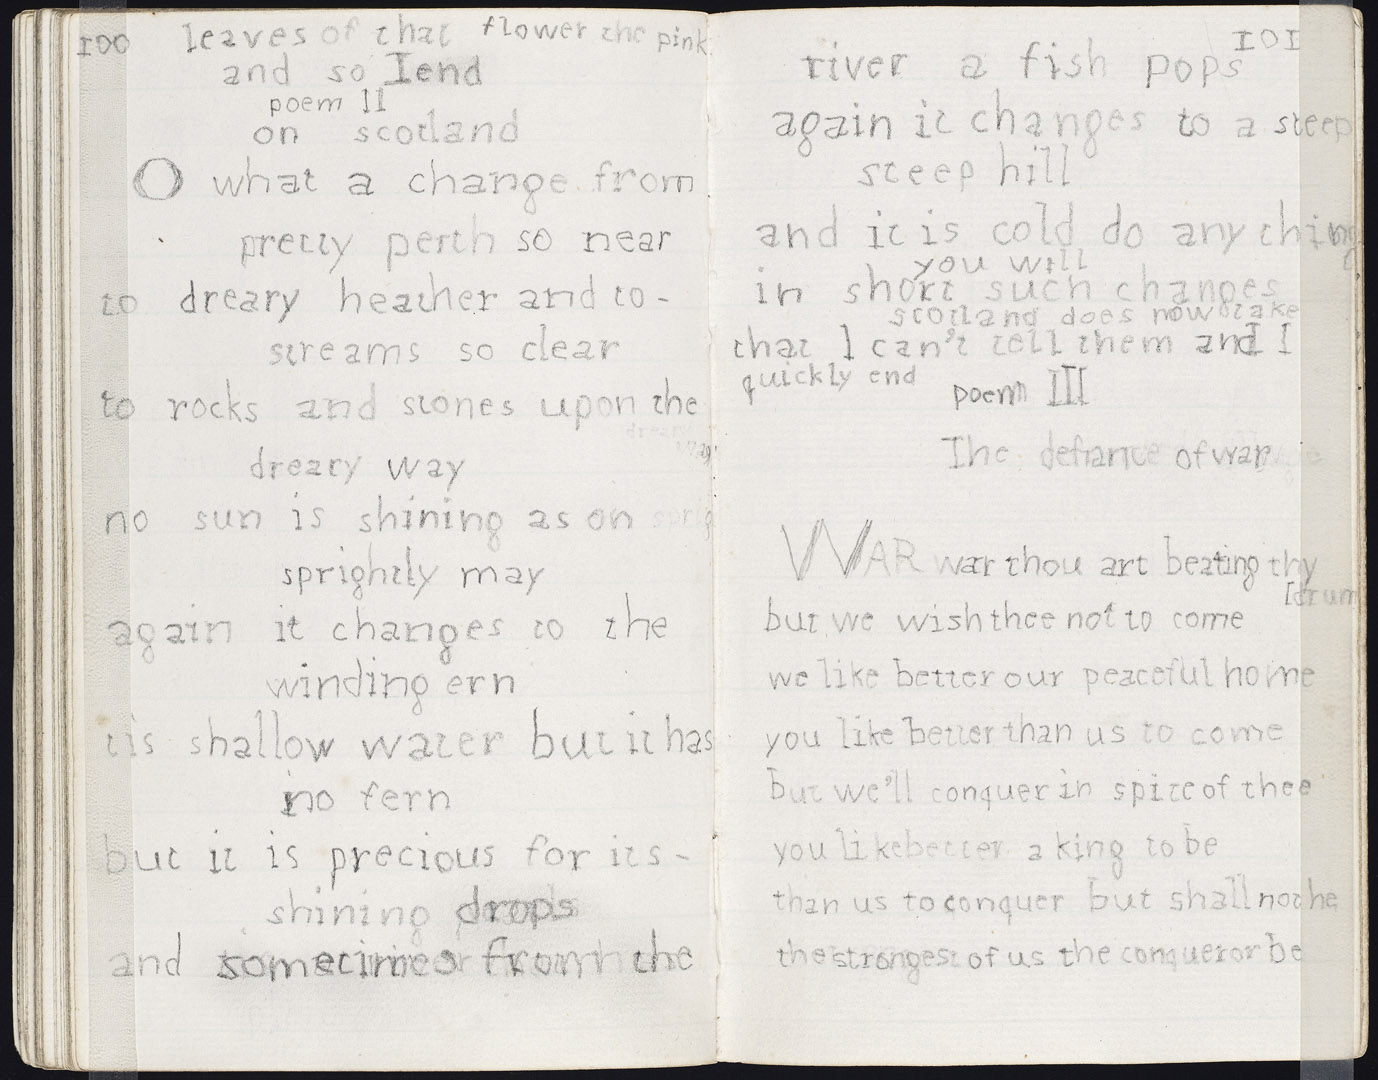 100
leaves of that flower the pink
and so I end
poem II
on scotland
O what a change from
pretty perth so near
to dreary heather and to-
streams so clear
to rocks and stones upon the
dreary way
no sun is shining as on sprig
sprightly may
again it changes to the
winding ern
tis shallow water but it has
no fern
but it is precious for its-
shining drops
and sometimes from the
101
river a fish pops
again it changes to a steep
steep hill
and it is cold do any thing
you will
in short such changes
scotland does now take
that I can't tell them and I I
quickly end
poem III
The defiance of war
WAR war thou art beating thy
[drum
but we wish thee not to come
we like better our peaceful home
you like better than us to come
but we'll conquer in spite of thee
you like better a king to be
than us to conquer but shall not he
the strongest of us the conqueror be